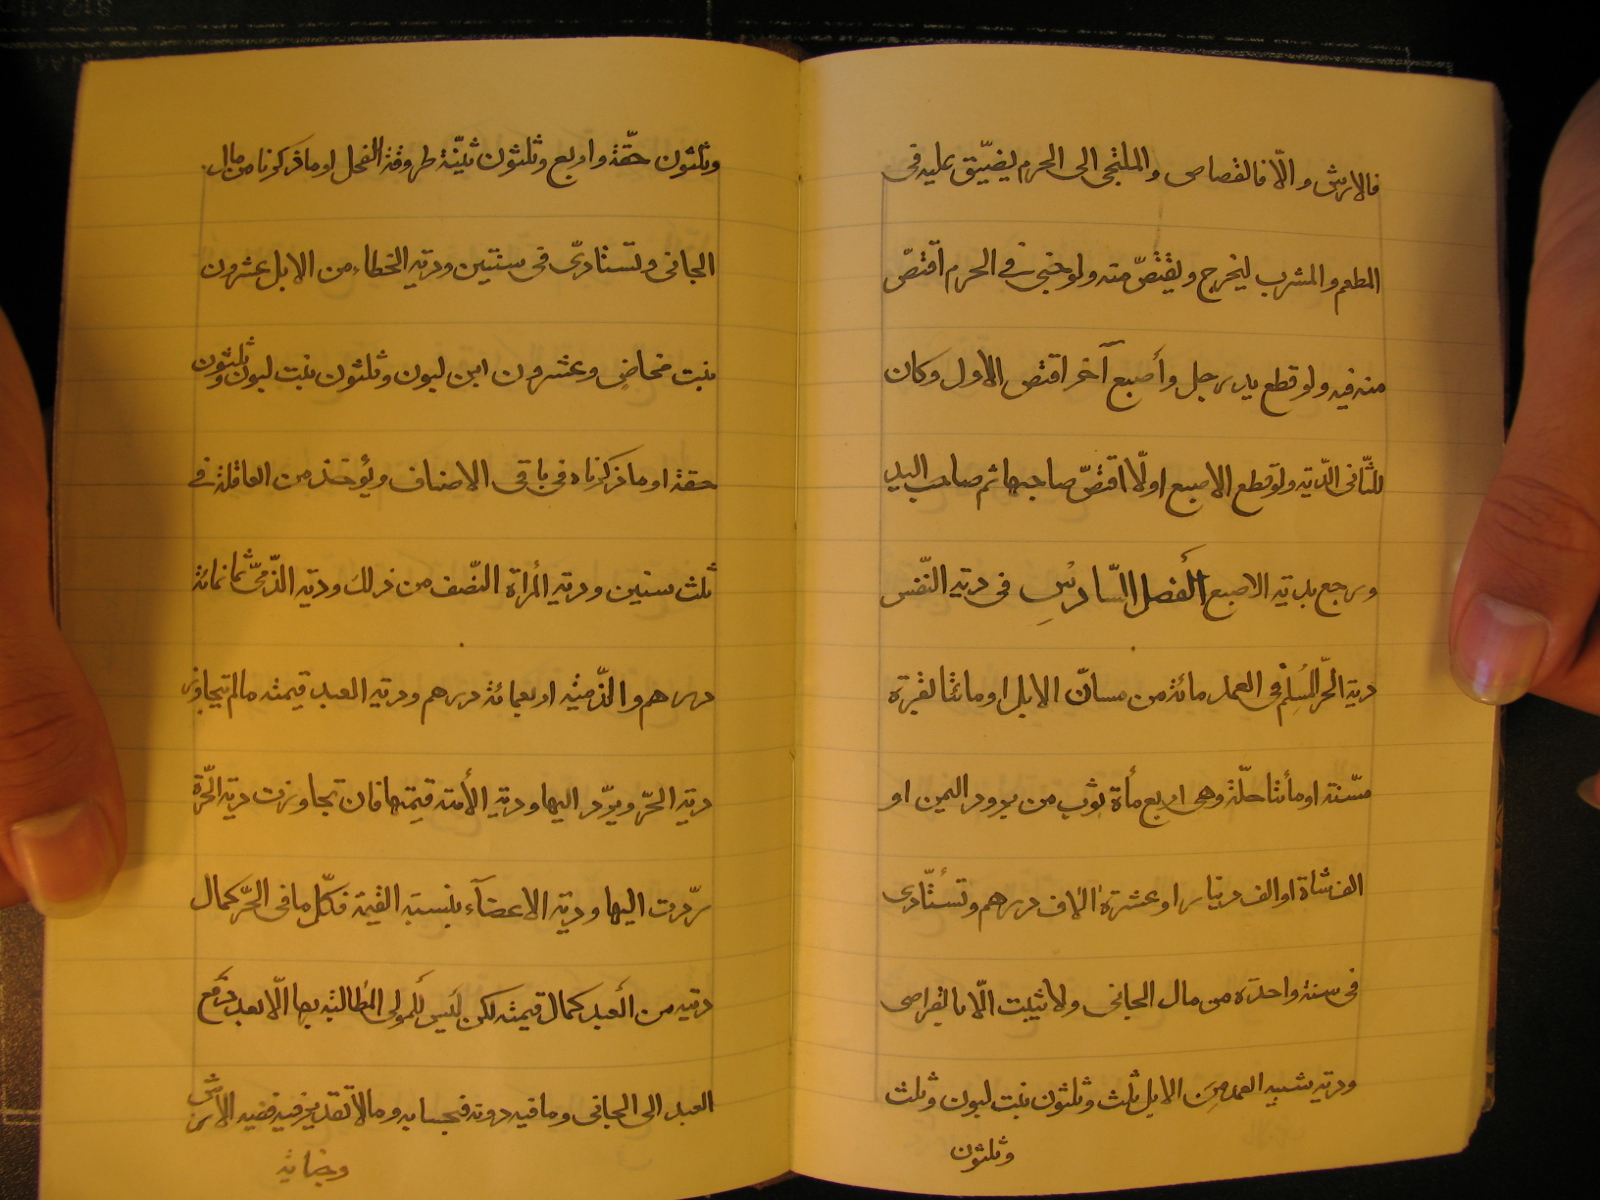 فالارش و الّا فالقصاص و الملتجی الی الحرم یضیّق علیه فی
المطعم و المشرب لیخرج و یقتصّ منه ولو جنی فی الحرم اقتصّ
منه فیه ولو قطع ید رجل و أصبع آخر اقتص الاول و کان
للثّانی الدّیة ولو قطع الاصبع اولّا اقتصّ صاحبها ثم صاحب الید
و رجع بدیة الاصبع الفصل السّادس فی دیة النّفس
دیة الحرّ المسلم فی العمد مائة من مسانّ الابل او مائتا بقرة
مسّنة او مأتا حلّة وهی اربع مأة ثوب من برود الیمن او
الف شاة او الف دینار او عشرة الاف درهم و تستأدی
فی سنة واحدة من مال الجانی ولا تثبت الّا بالتراضی
ودیة شبیه العمد من الابل ثلث و ثلثون بنت لبون و ثلث
و ثلثون
و ثلثون حقّة و اربع و ثلثون ثنیّة طروقة الفحل او ما ذکرنا من مال
الجانی و تستادی فی سنتین و دیة الخطاء من الابل عشرون
بنت مخاض و عشرون ابن لبون و ثلثون بنت لبون و ثلثون
حقة او ما ذکرناه فی باقی الاصناف و یؤخذ من العاقلة فی
ثلث سنین و دیة المراة النّصف من ذلک و دیة الذّمیّ ثمانمائة
درهم و الذّمیّة اربعمائة درهم و دیة العبد قیمته ما لم یتجاوز
دیة الحرّ و یرّد الیها و دیة الأمة قیمتها فان تجاوزت دیة الحّرة
ردّت الیها و دیة الاعضآء بنسبة القیمة فکلّ ما فی الحرّ کمال
دیته من العبد کمال قیمته لکن لیس للمولی المطالبة بها الّا بعد دفع
العبد الی الجانی و ما فیه دونه فبحسابه و مالا تقدیر فیه ففیه الارش
و جنایة